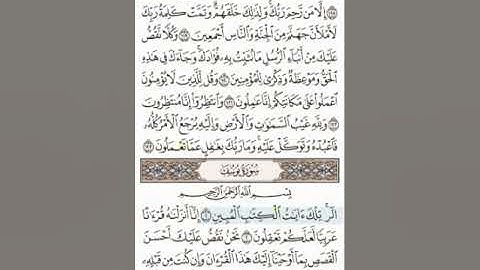 ﴿١١٨﴾ إِلَّا مَن رَّحِمَ رَبُّكَ وَلِذَٰلِكَ خَلَقَهُمْ وَتَمَّتْ كَلِمَةُ رَبِّكَ
لَأَمْلَأَنَّ جَهَنَّمَ مِنَ الْجِنَّةِ وَالنَّاسِ أَجْمَعِينَ ﴿١١٩﴾ وَكُلًّا نَّقُصُّ
عَلَيْكَ مِنْ أَنبَاءِ الرُّسُلِ مَا نُثَبِّتُ بِهِ فُؤَادَكَ وَجَاءَكَ فِي هَٰذِهِ
الْحَقُّ وَمَوْعِظَةٌ وَذِكْرَىٰ لِلْمُؤْمِنِينَ ﴿١٢٠﴾ وَقُل لِّلَّذِينَ لَا يُؤْمِنُونَ
اعْمَلُوا عَلَىٰ مَكَانَتِكُمْ إِنَّا عَامِلُونَ ﴿١٢١﴾ وَانتَظِرُوا إِنَّا مُنتَظِرُونَ
﴿١٢٢﴾ وَلِلَّهِ غَيْبُ السَّمَاوَاتِ وَالْأَرْضِ وَإِلَيْهِ يُرْجَعُ الْأَمْرُ كُلُّهُ
فَاعْبُدْهُ وَتَوَكَّلْ عَلَيْهِ وَمَا رَبُّكَ بِغَافِلٍ عَمَّا تَعْمَلُونَ ﴿١٢٣﴾
سُورَةُ يُوسُفَ
بِسْمِ اللَّهِ الرَّحْمَٰنِ الرَّحِيمِ
الر تِلْكَ ءَايَاتُ الْكِتَابِ الْمُبِينِ ﴿١﴾ إِنَّا أَنزَلْنَاهُ قُرْءَانًا
عَرَبِيًّا لَّعَلَّكُمْ تَعْقِلُونَ ﴿٢﴾ نَحْنُ نَقُصُّ عَلَيْكَ أَحْسَنَ
الْقَصَصِ بِمَا أَوْحَيْنَا إِلَيْكَ هَٰذَا الْقُرْءَانَ وَإِن كُنتَ مِن قَبْلِهِ